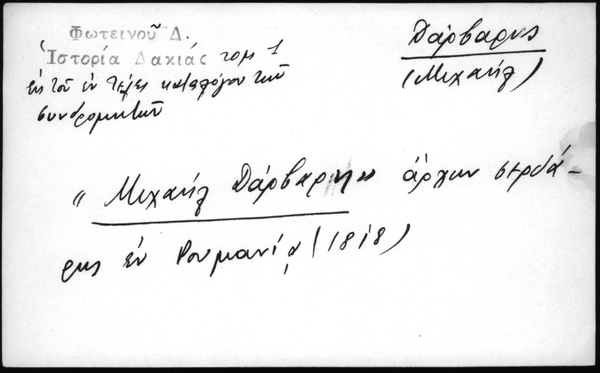 Φωτεινοῦ Δ.
Ἱστορία Δακιάς τομ 1
ἐκ τοῦ ἐν τέλει καταλόγου τῶν
συνδρομητῶν
Δάρβαρης
(Μιχαήλ)
"Μιχαήλ Δάρβαρη" ἄρχων σερδά-
ρης ἐν Ρουμανίᾳ (1818)